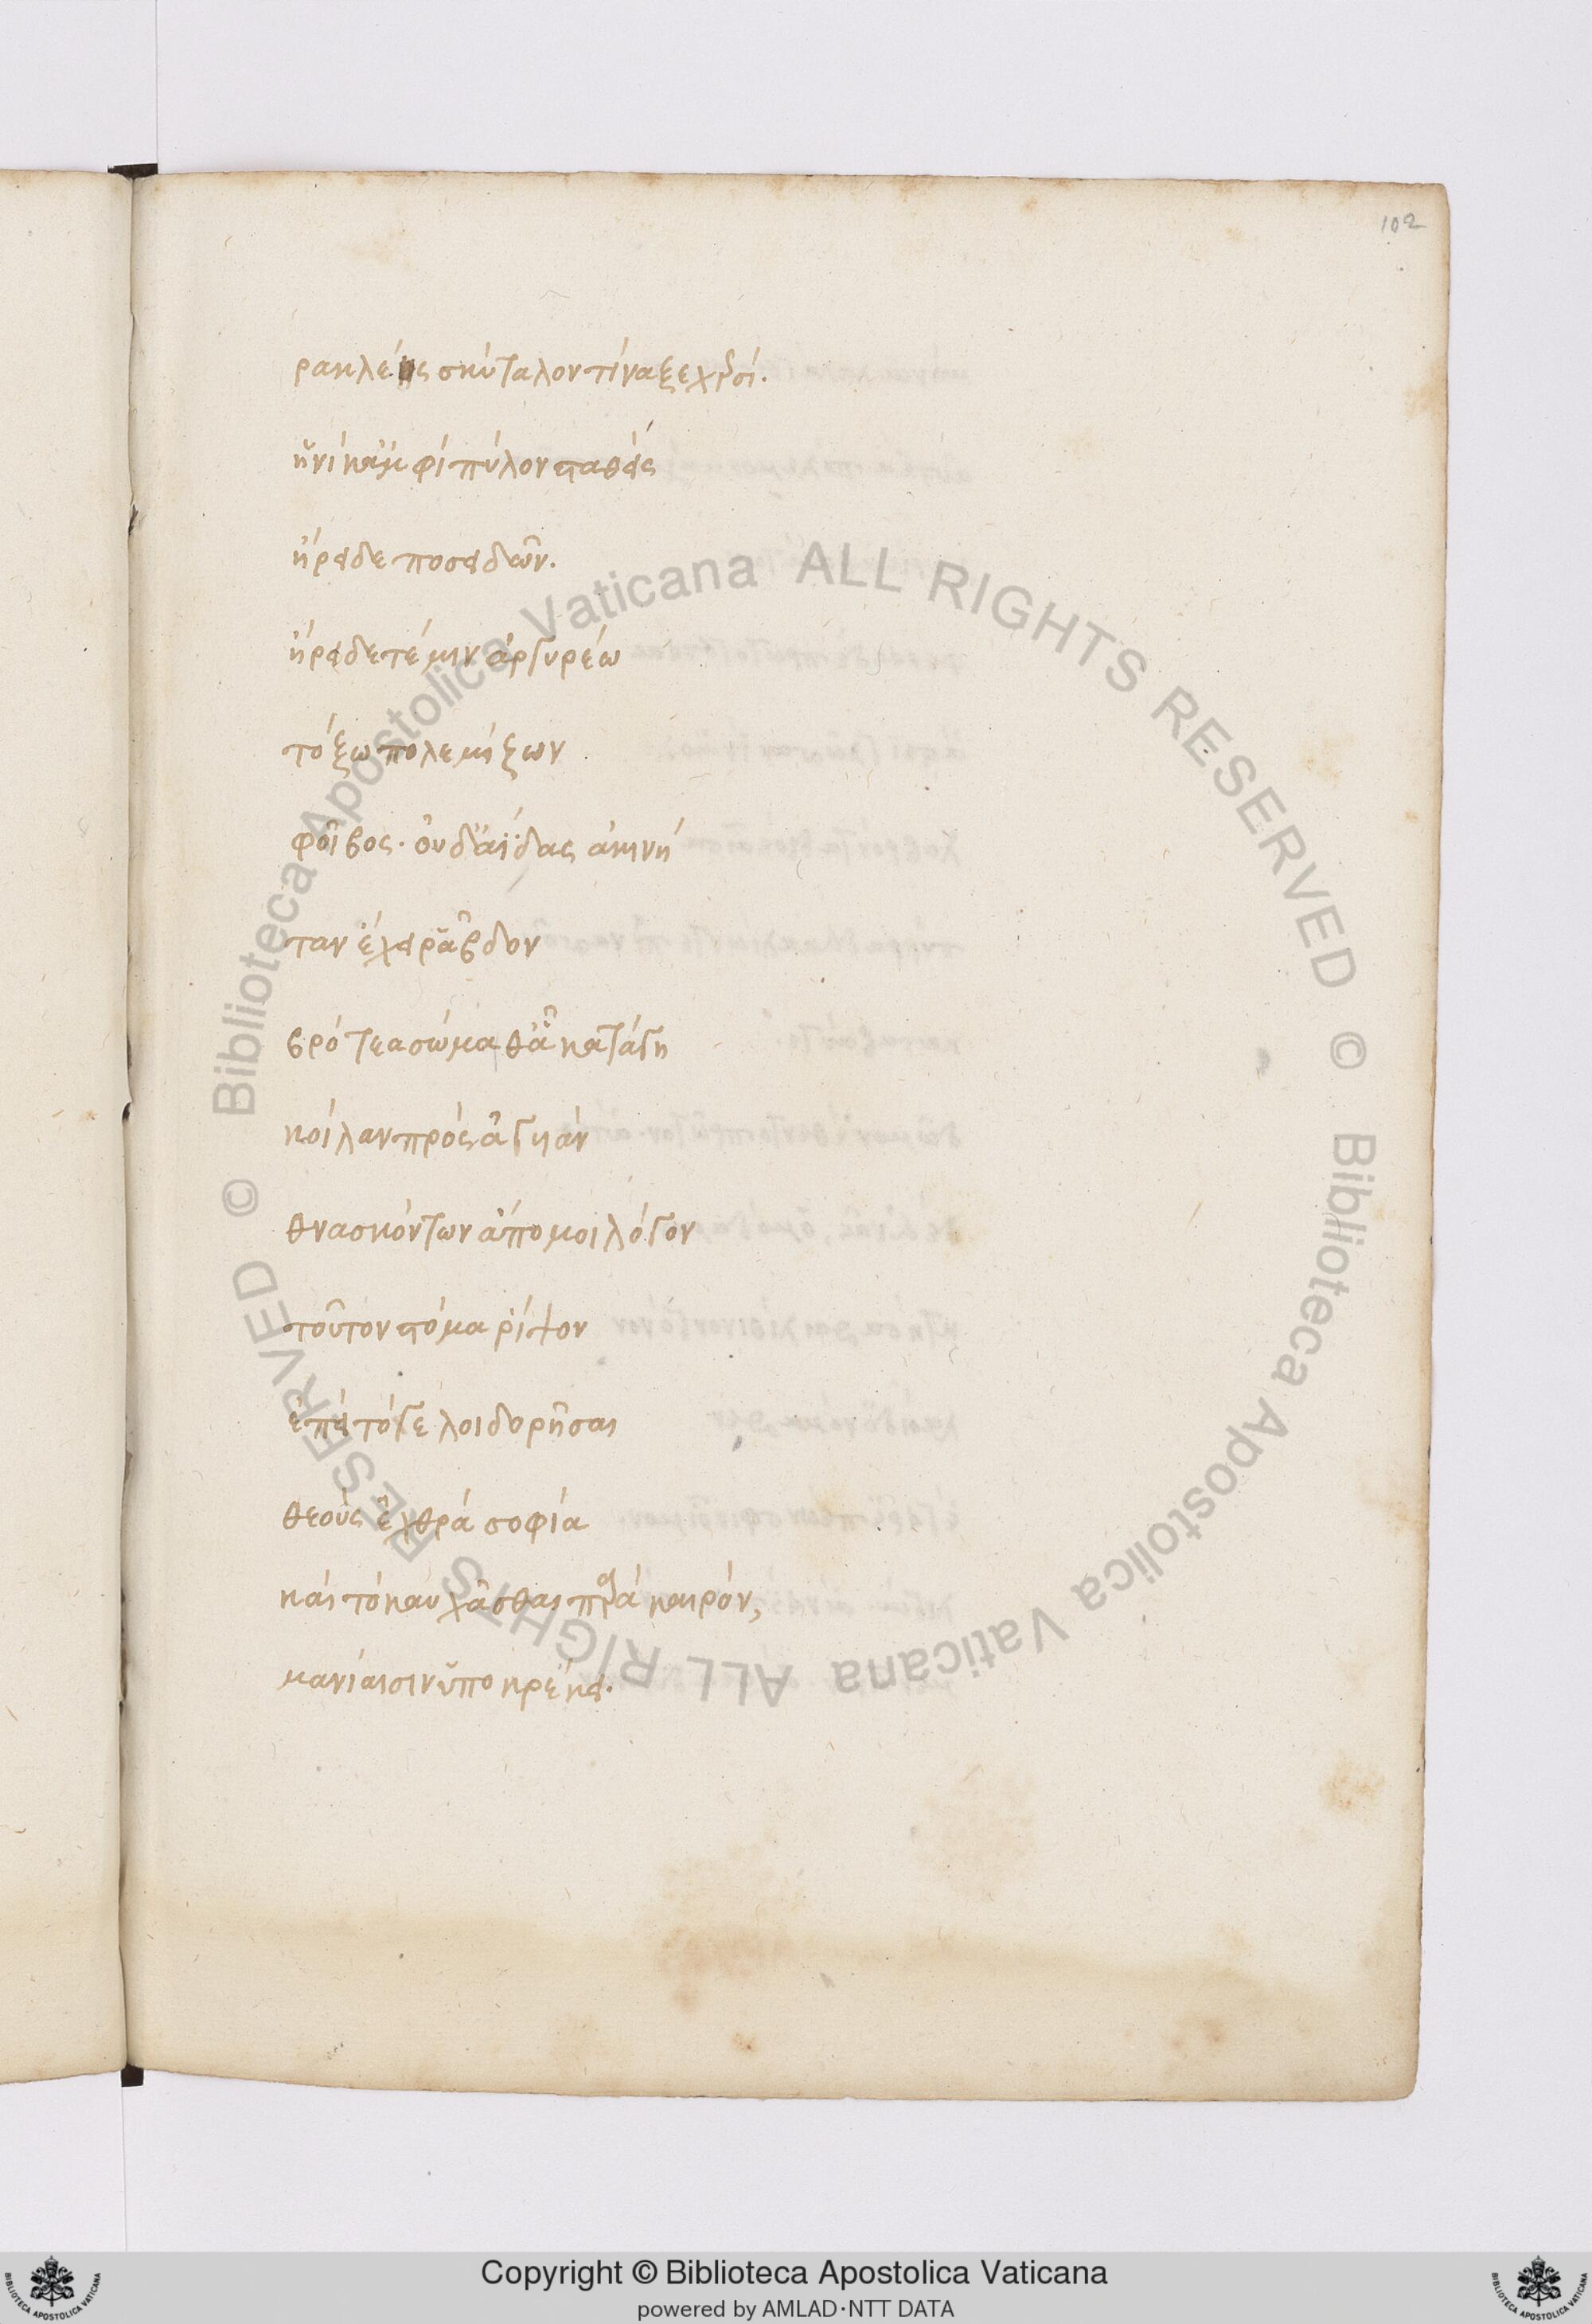 102
ρακλέης σκύταλον τίναξε χρσί.
ἡνίκ' ἀμφί πύλον σταθείς
ἤρειδε ποσειδῶν.
ἤρειδε τέ μιν ἀργυρέω
τόξω πολεμίξων
φοῖβος· οὐδ' ἀΐδας ἀκινή
ταν ἔχε ῥάβδον
βρότεα σώμαθ' ᾇ κατάγει
κοίλαν πρός ἀγυιάν
θνασκόντων ἀπό μοι λόγον
τοῦτον στόμα ῥίψον
ἐπεί τόγε λοιδορῆσαι
θεούς ἐχθρά σοφία
καί τό καυχᾶσθαι πρά καιρόν,
μανίαισιν ὑποκρέκει.
Biblioteca Apostolica Vaticana ALL RIGHTS RESERVED ©
Biblioteca Apostolica Vaticana ALL RIGHTS RESERVED ©
Copyright © Biblioteca Apostolica Vaticana
powered by AMLAD·NTT DATA
BIBLIOTECA APOSTOLICA VATICANA
BIBLIOTECA APOSTOLICA VATICANA